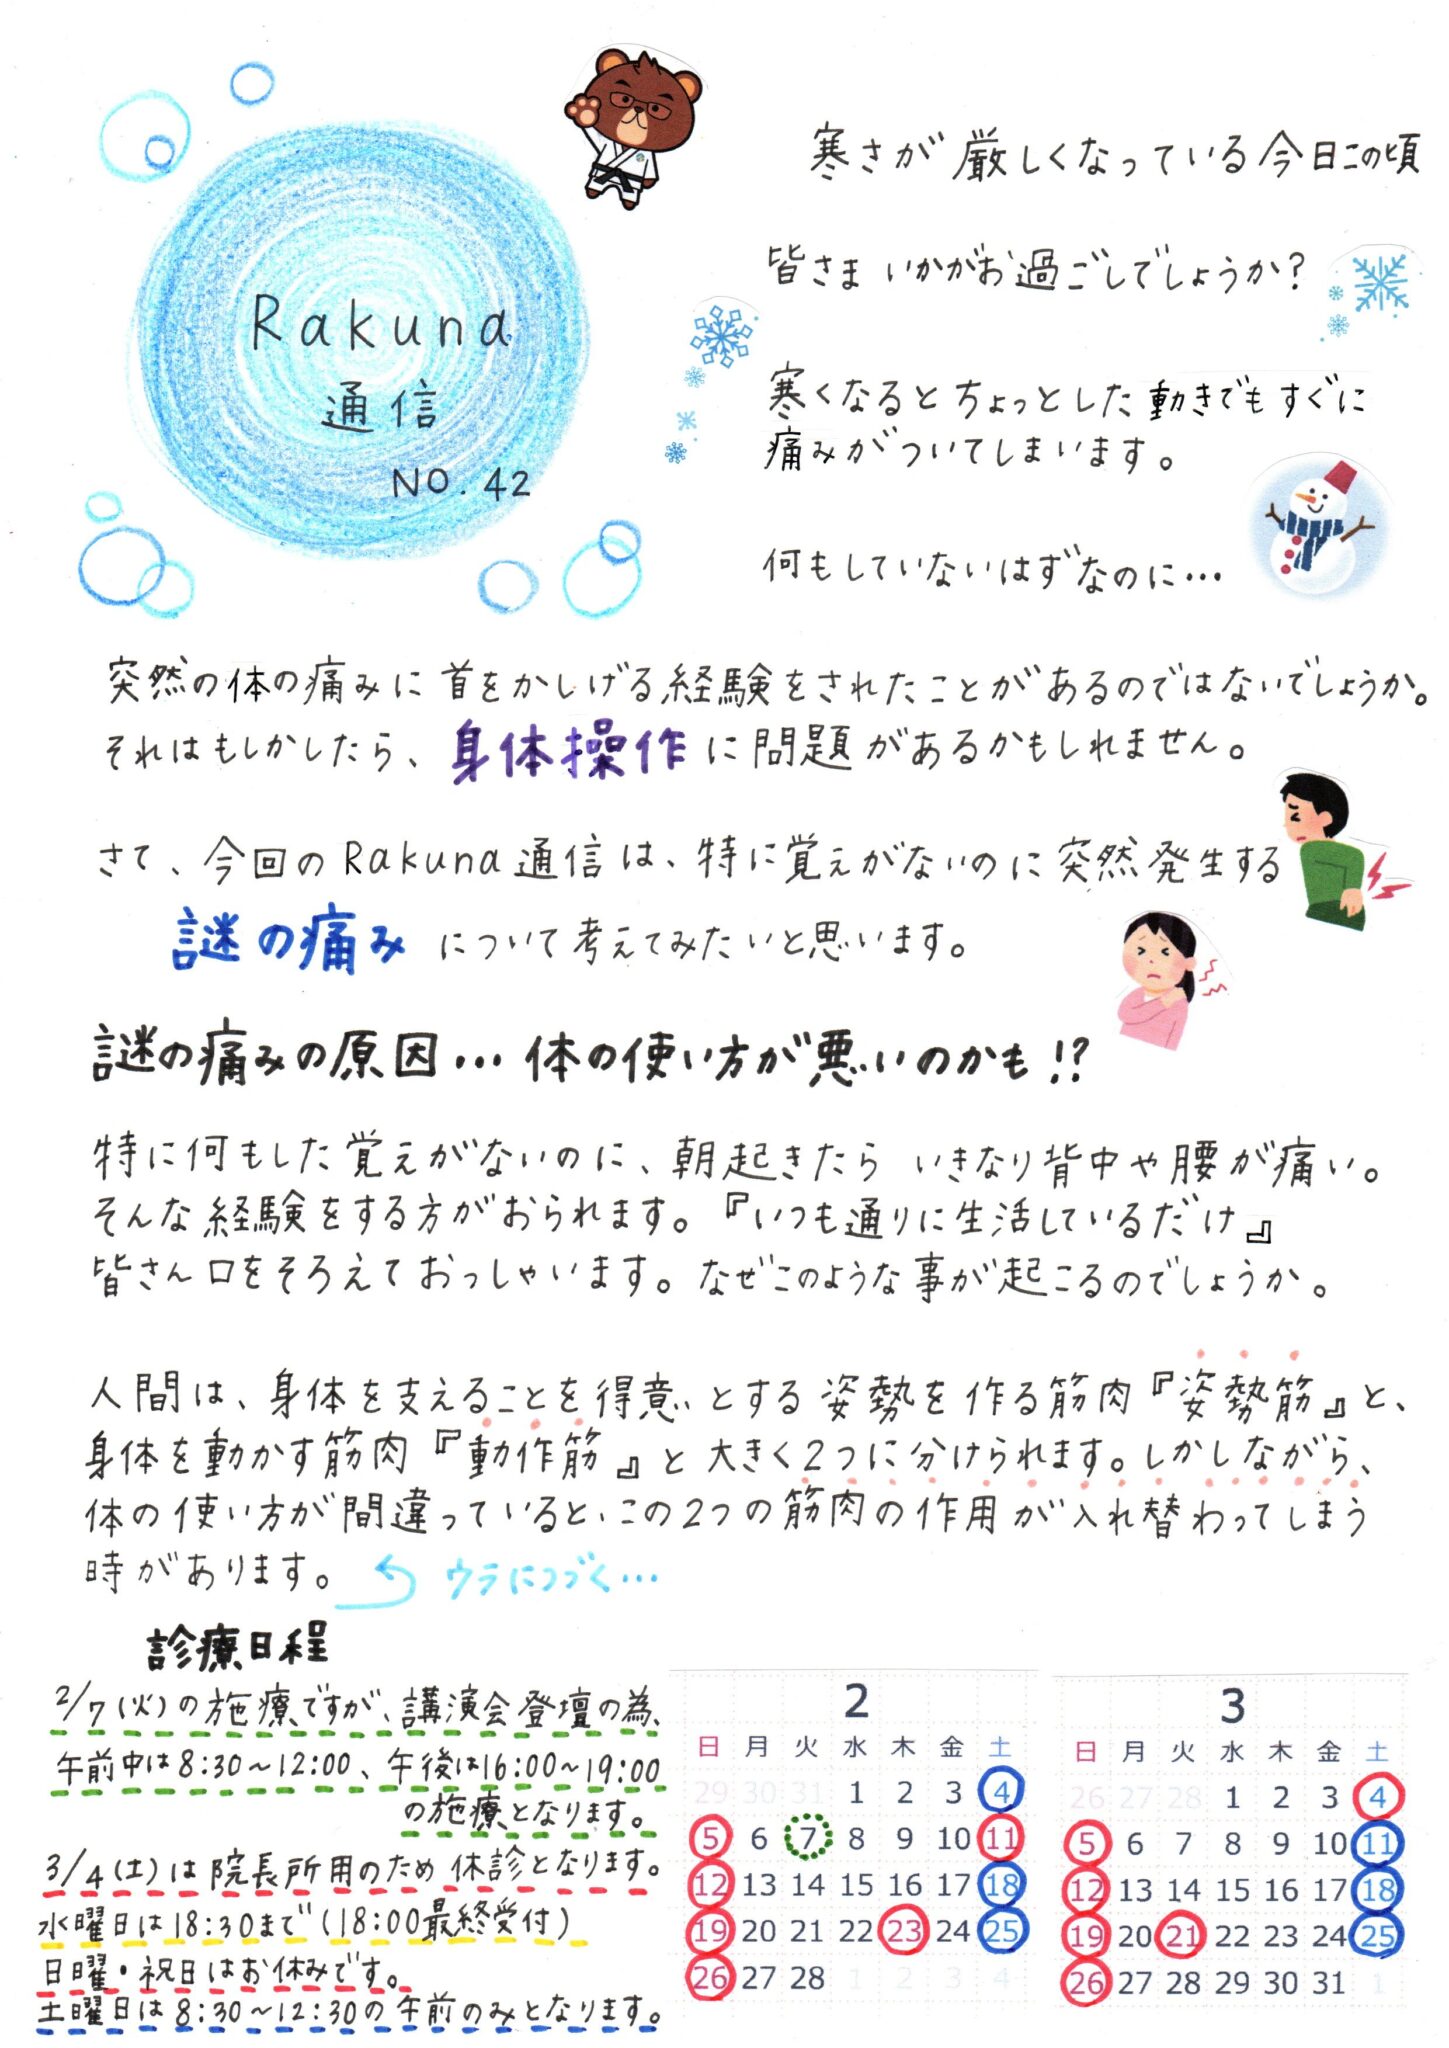 Rakuna
通信
NO.42
寒さが厳しくなっている今日この頃
皆さま いかがお過ごしでしょうか?
寒くなるとちょっとした動きでもすぐに
痛みがついてしまいます。
何もしていないはずなのに…
突然の体の痛みに首をかしげる経験をされたことがあるのではないでしょうか。
それはもしかしたら、身体操作に問題があるかもしれません。
さて、今回のRakuna通信は、特に覚えがないのに突然発生する
謎の痛みについて考えてみたいと思います。
謎の痛みの原因…体の使い方が悪いのかも!?
特に何もした覚えがないのに、朝起きたら いきなり背中や腰が痛い。
そんな経験をする方がおられます。『いつも通りに生活しているだけ』
皆さん口をそろえておっしゃいます。なぜこのような事が起こるのでしょうか。
人間は、身体を支えることを得意とする姿勢を作る筋肉『姿勢筋』と、
身体を動かす筋肉『動作筋』と大きく2つに分けられます。しかしながら、
体の使い方が間違っていると、この2つの筋肉の作用が入れ替わってしまう
時があります。
ウラにつづく…
診療日程
2/7(火)の施療ですが、講演会登壇の為、
午前中は8:30~12:00、午後は16:00~19:00
の施療となります。
3/4(土)は院長所用のため休診となります。
水曜日は18:30まで(18:00最終受付)
日曜・祝日はお休みです。
土曜日は8:30~12:30の午前のみとなります。
2
日 月 火 水 木 金 土
29 30 31 1 2 3 4
5 6 7 8 9 10 11
12 13 14 15 16 17 18
19 20 21 22 23 24 25
26 27 28 1 2 3 4
3
日 月 火 水 木 金 土
26 27 28 1 2 3 4
5 6 7 8 9 10 11
12 13 14 15 16 17 18
19 20 21 22 23 24 25
26 27 28 29 30 31 1